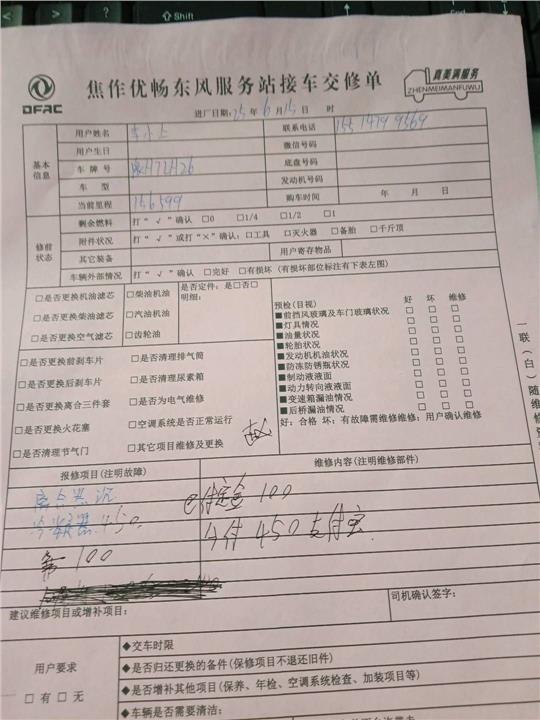 Shift
DFAC
焦作优畅东风服务站接车交修单
真美满服务
ZHENMEIMANFUWU
进厂日期:25年6月15日 时
基本信息
用户姓名
联系电话
用户生日
微信号码
车牌号
底盘号码
车型
发动机号码
当前里程 156599
购车时间 年 月 日
修前状态
剩余燃料 打“√”确认 □0 □1/4 □1/2 □1
附件状况 打“√”或打“×”确认:□工具 □灭火器 □备胎 □千斤顶
其它装备
用户寄存物品
车辆外部情况 打“√”确认 □完好 □有损坏 (有损坏部位标注有下表左图)
□是否更换机油滤芯 □柴油机油
是否定件:是□否□
明细:
□是否更换柴油滤芯 □汽油机油
□是否更换空气滤芯 □齿轮油
预检(目视) 好 坏 维修
■前挡风玻璃及车门玻璃状况 □ □ □
■灯具情况 □ □ □
■油量状况 □ □ □
■轮胎状况 □ □ □
■发动机机油状况 □ □ □
■防冻防锈瓶状况 □ □ □
■制动液液面 □ □ □
■动力转向液液面 □ □ □
■变速箱漏油情况 □ □ □
■后桥漏油情况 □ □ □
好:合格 坏:有故障需维修维修:用户确认维修
□是否更换前刹车片 □是否清理排气筒
□是否更换后刹车片 □是否清理尿素箱
□是否更换离合三件套 □是否为电气维修
□是否更换火花塞 □空调系统是否正常运行
□是否清理节气门 □其它项目维修及更换
一联(白)随维修
报修项目(注明故障)
维修内容(注明维修部件)
冷凝器 450
已付定金 100
今付 450 支付宝
100
建议维修项目或增补项目:
司机确认签字:
用户要求
□有 □无
◆交车时限
◆是否归还更换的备件(保修项目不退还旧件)
◆是否增补其他项目(保养、年检、空调系统检查、加装项目等)
◆车辆是否需要清洁: